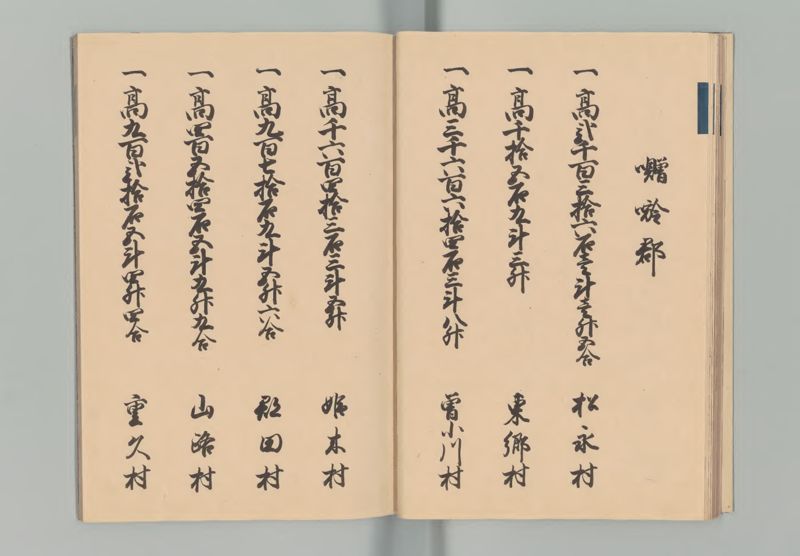 囎唹郡
一高弐千百三拾六石壱斗壱升五合 松永村
一高千拾五石九斗三升 東郷村
一高三千六百六拾四石三斗八升 曽小川村
一高千六百四拾三石三斗五升 姫木村
一高九百七拾石九斗五升六合 郡田村
一高四百五拾四石五斗九升九合 山路村
一高九百弐拾石五斗四升四合 重久村